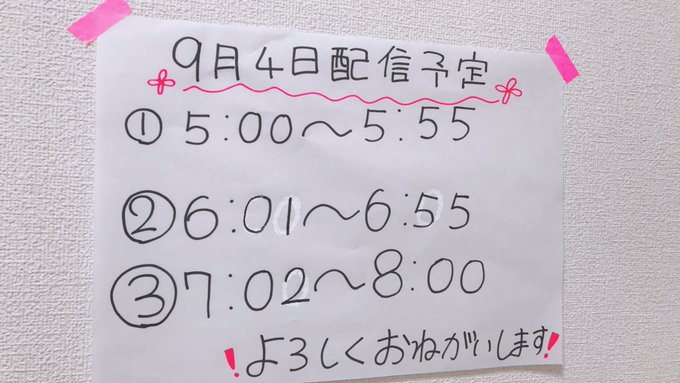 9月4日配信予定
①5:00〜5:55
②6:01〜6:55
③7:02〜8:00
よろしくおねがいします!